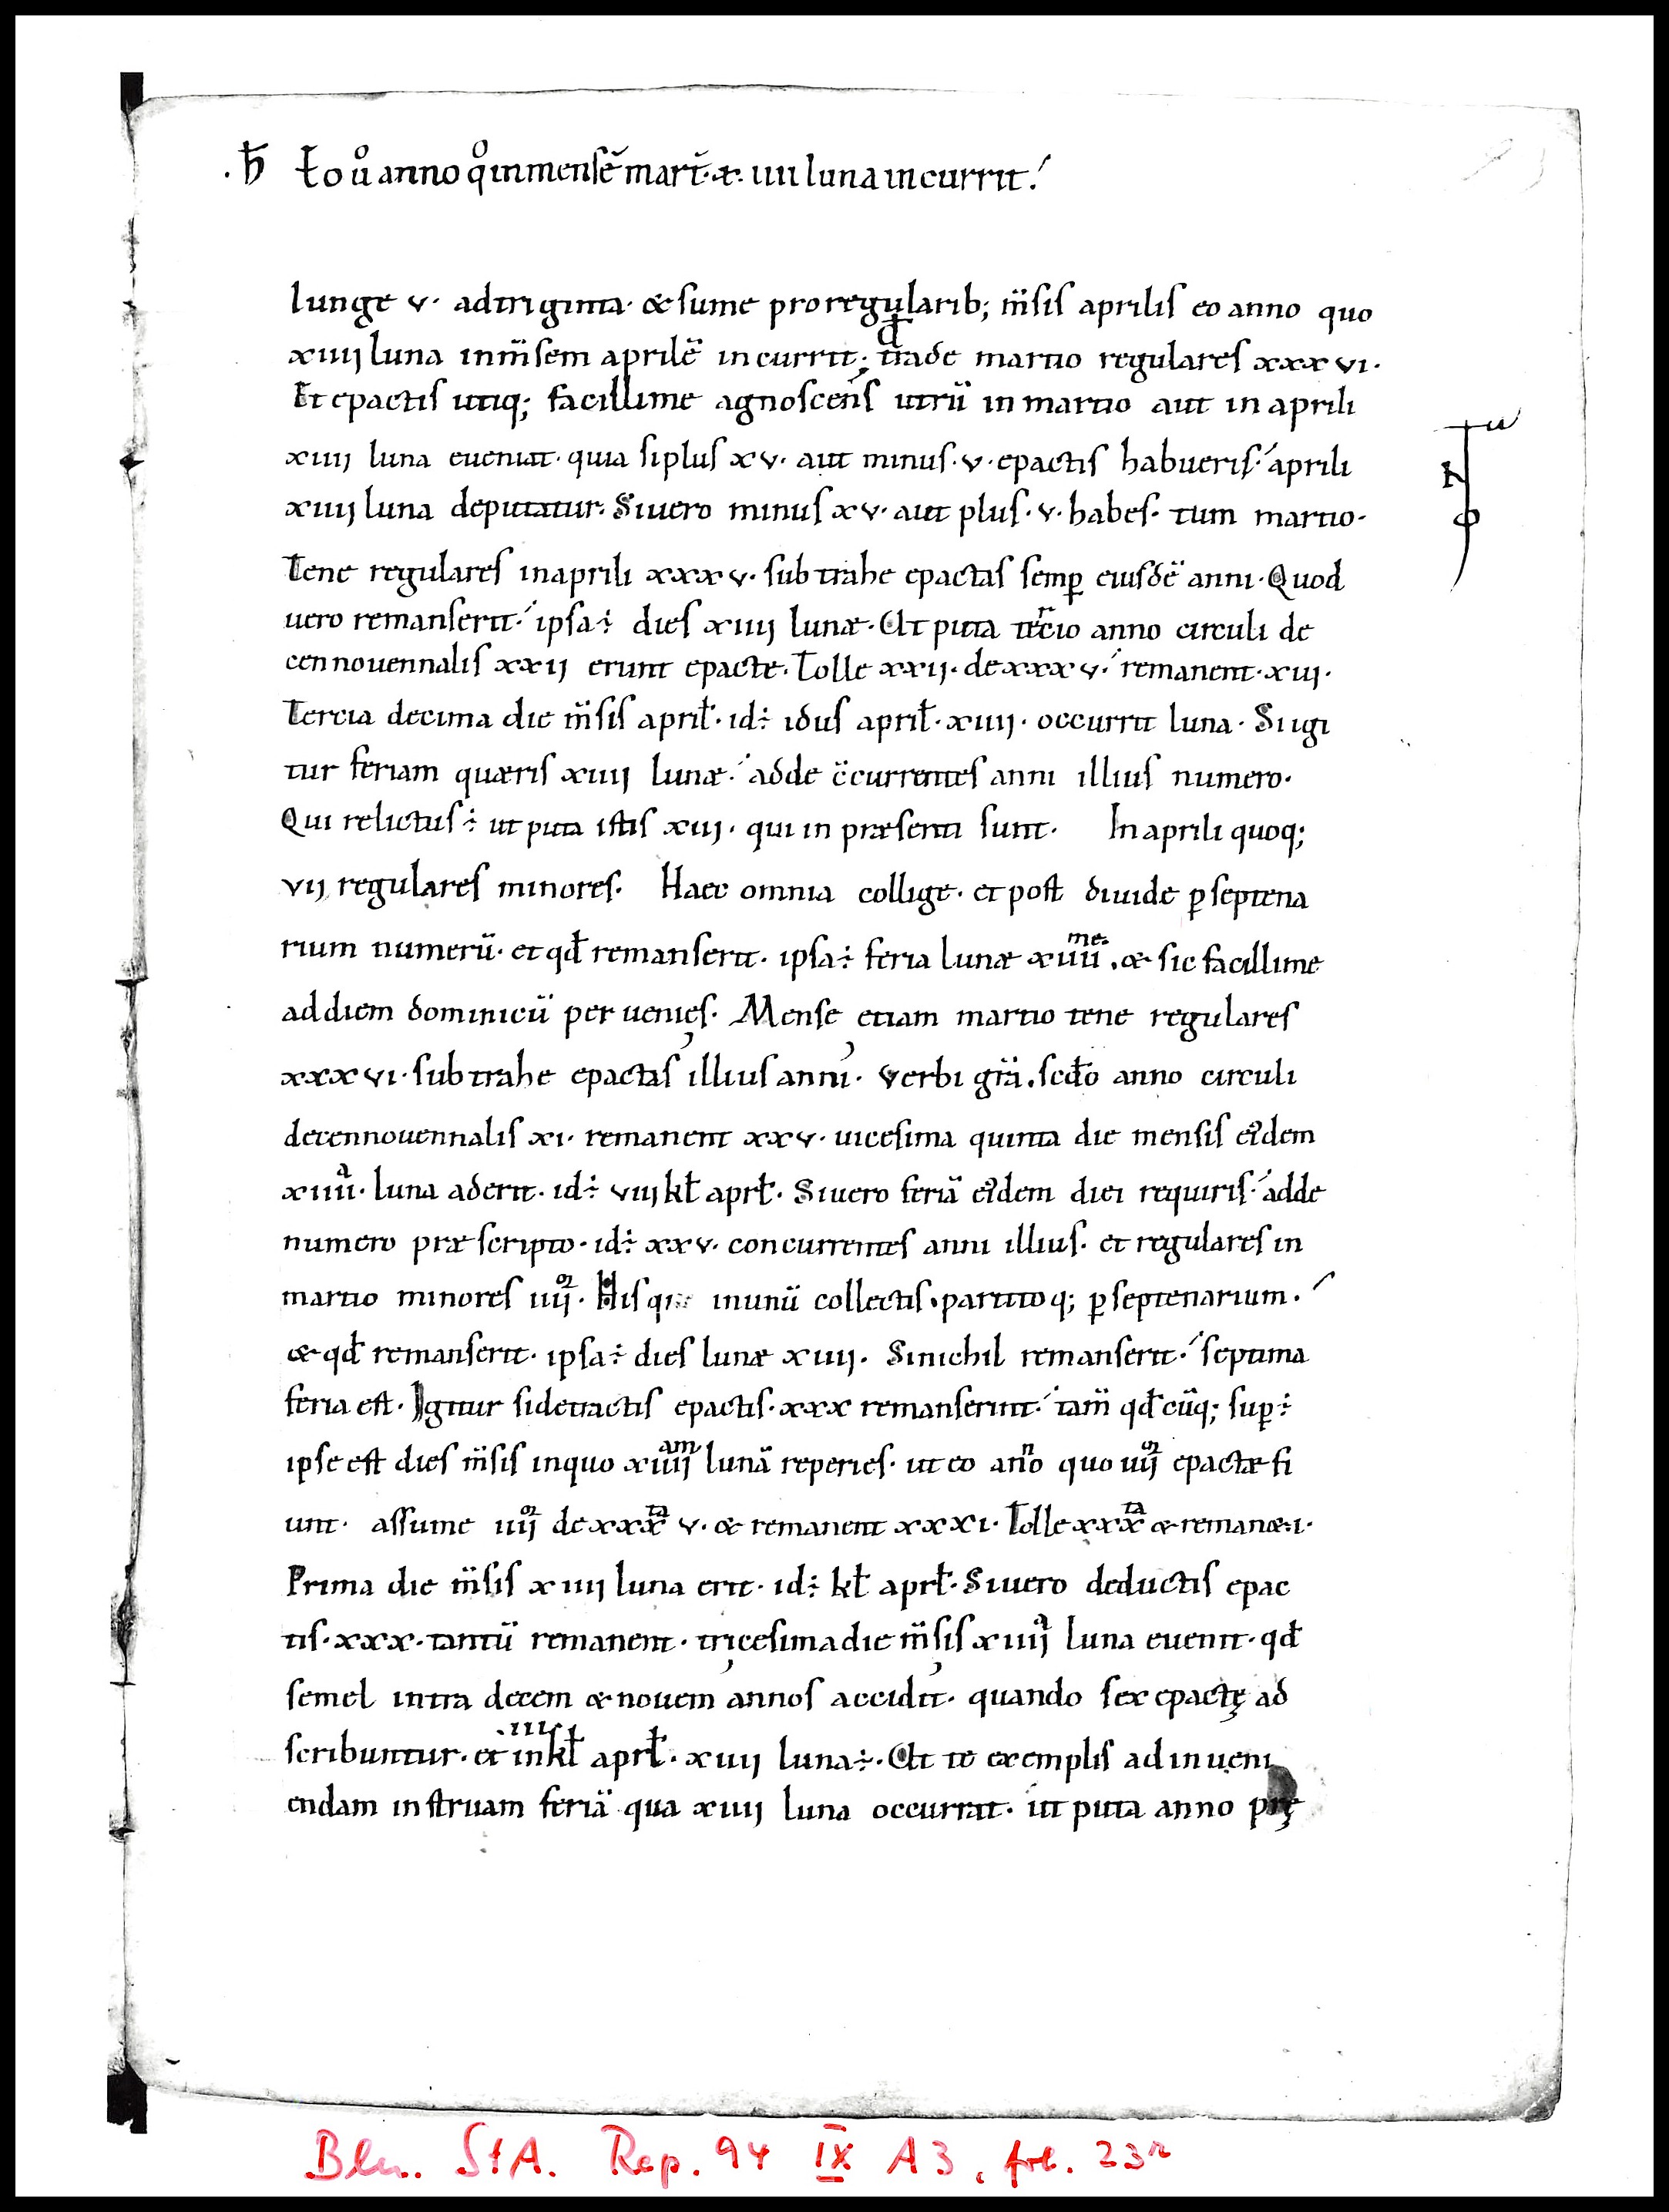 .ħ Eo uͦ anno qͦ in mensē mart̄. x. iiii luna incurrit.
Iunge v. ad triginta. & sume pro regularib; m̄sis aprilis eo anno quo
xiiij luna in m̄sem aprilē incurrit; trade martio regulares xxxvi.
đ
Et epactis utiq; facillime agnoscen̄s utrū in martio aut in aprili
xiiij luna eueniat. quia si plus xv. aut minus. v. epactis habueris. aprili
xiiij luna deputatur. Si uero minus xv. aut plus. v. habes. tum martio.
Tene regulares in aprili xxxv. subtrahe epactas semꝑ eiusdē anni. Quod
uero remanserit. ipsa ÷ dies xiiij lunæ. Ut puta tercio anno circuli de
cennouennalis xxij erunt epacte. Tolle xxij. de xxxv. remanent. xiij.
Tercia decima die m̄sis april̄. id ÷ idus april̄. xiiij. occurrit luna. Si igi
tur feriam quæris xiiij lunæ. adde c̄currentes anni illius numero.
Qui relictus ÷ ut puta istis xiij. qui in præsenti sunt. In aprili quoq;
vij regulares minores. Haec omnia collige. et post diuide ꝑ septena
rium numerū. et qđ remanserit. ipsa ÷ feria lunæ xiiii me. & sic facillime
ad diem dominicū peruenies. Mense etiam martio tene regulares
xxxvi. subtrahe epactas illius anni. Verbi gr̄a. secđo anno circuli
decennouennalis xi. remanent xxv. uicesima quinta die mensis eꝰdem
xiiii a. luna aderit. id ÷ viij kł aprł. Si uero feriā eꝰdem diei requiris. adde
numero præscripto. id ÷ xxv. concurrentes anni illius. et regulares in
martio minores iiij or. His in unū collectis. partitoq; ꝑ septenarium.
& qđ remanserit. ipsa ÷ dies lunæ xiiij. Si nichil remanserit. septima
feria est. Igitur si detractis epactis. xxx remanserint. tam̄ qđcūq; supꝑ ÷
ipse est dies m̄sis in quo xiiij am lunā reperies. ut eo ano quo iiij or epactæ fi
unt. assume iiij or de xxx ta v. & remanent xxxi. Tolle xxx ta & remanæt i.
Prima die m̄sis xiiij luna erit. id ÷ kł aprł. Si uero deductis epac
tis. xxx. tantū remanent. tricesima die m̄sis xiiij a luna euenit. qđ
semel intra decem & nouem annos accidit. quando sex epactę ad
scribuntur. et in .iii. kł aprł. xiiij luna ÷. Ut te exemplis ad inueni
endam instruam feriā qua xiiij luna occurrat. ut puta anno prę
Bln. StA. Rep. 94 IX A3, fol. 23r